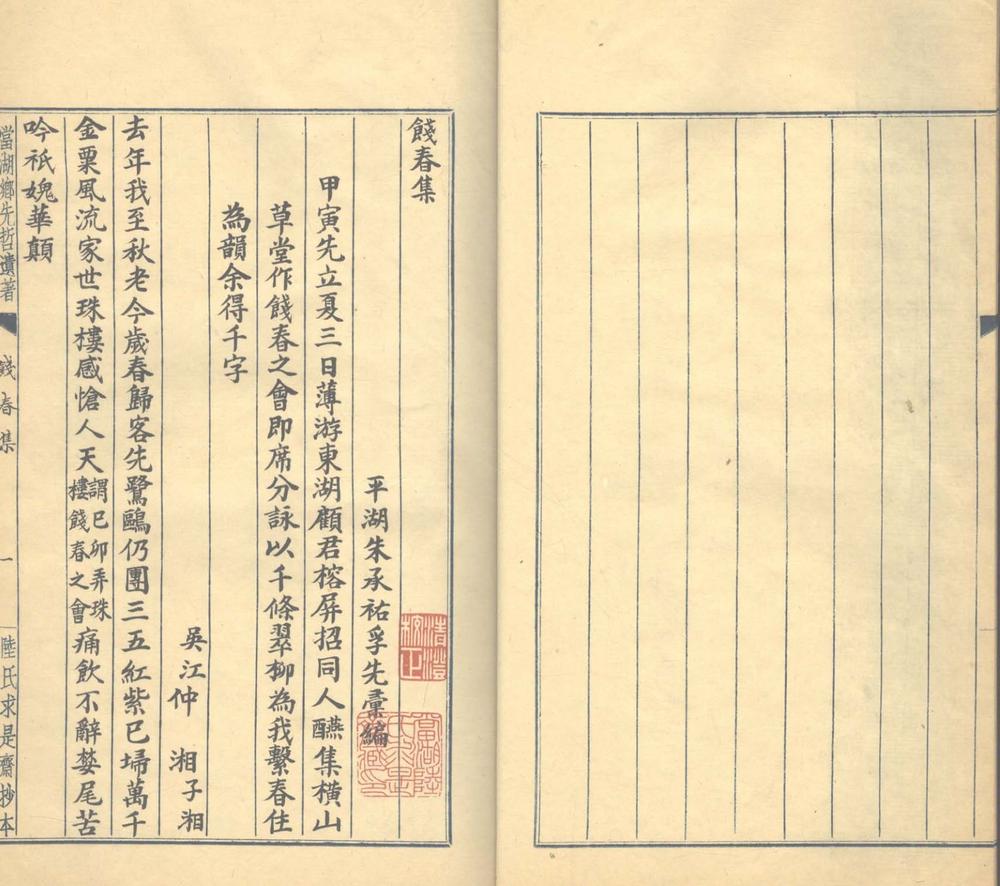 餞春集
平湖朱承祐孚先彙編
甲寅先立夏三日薄游東湖顧君榕屏招同人醼集橫山
草堂作餞春之會即席分詠以千條翠柳為我繫春住
為韻余得千字
吳江仲 湘子湘
去年我至秋老今歲春歸客先鷺鷗仍團三五紅紫已埽萬千
金粟風流家世珠樓感愴人天謂已卯弄珠樓餞春之會痛飲不辭婪尾苦
吟祇媿華顛
當湖鄉先哲遺著 餞春集 一 陸氏求是齋抄本
清澄校正
當湖陸氏求是齋藏印